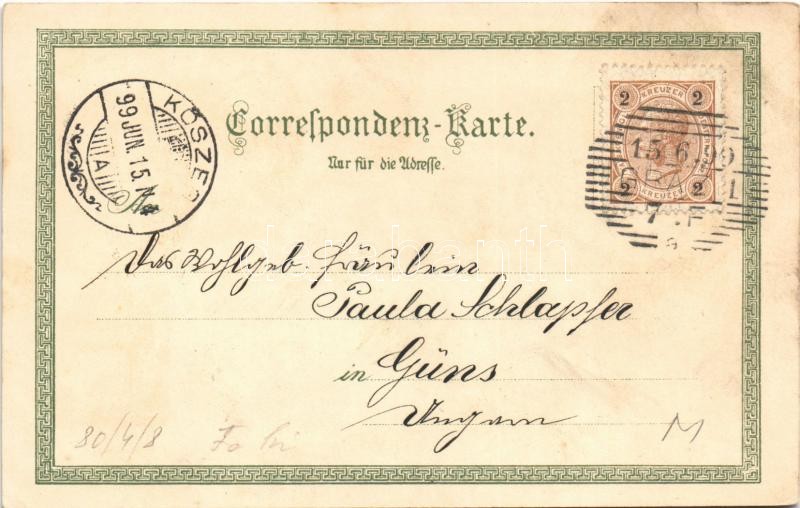 KÖSZEG
99 JUN. 15.
A
Correspondenz-Karte.
Nur für die Adresse.
An
2 KREUZER 2
2 KREUZER 2
15.6.99
GRAZ 1
7. F
Das Wohlgeb. Fräulein
Paula Schlapfer
in Güns
Ungarn
80/4/8
M